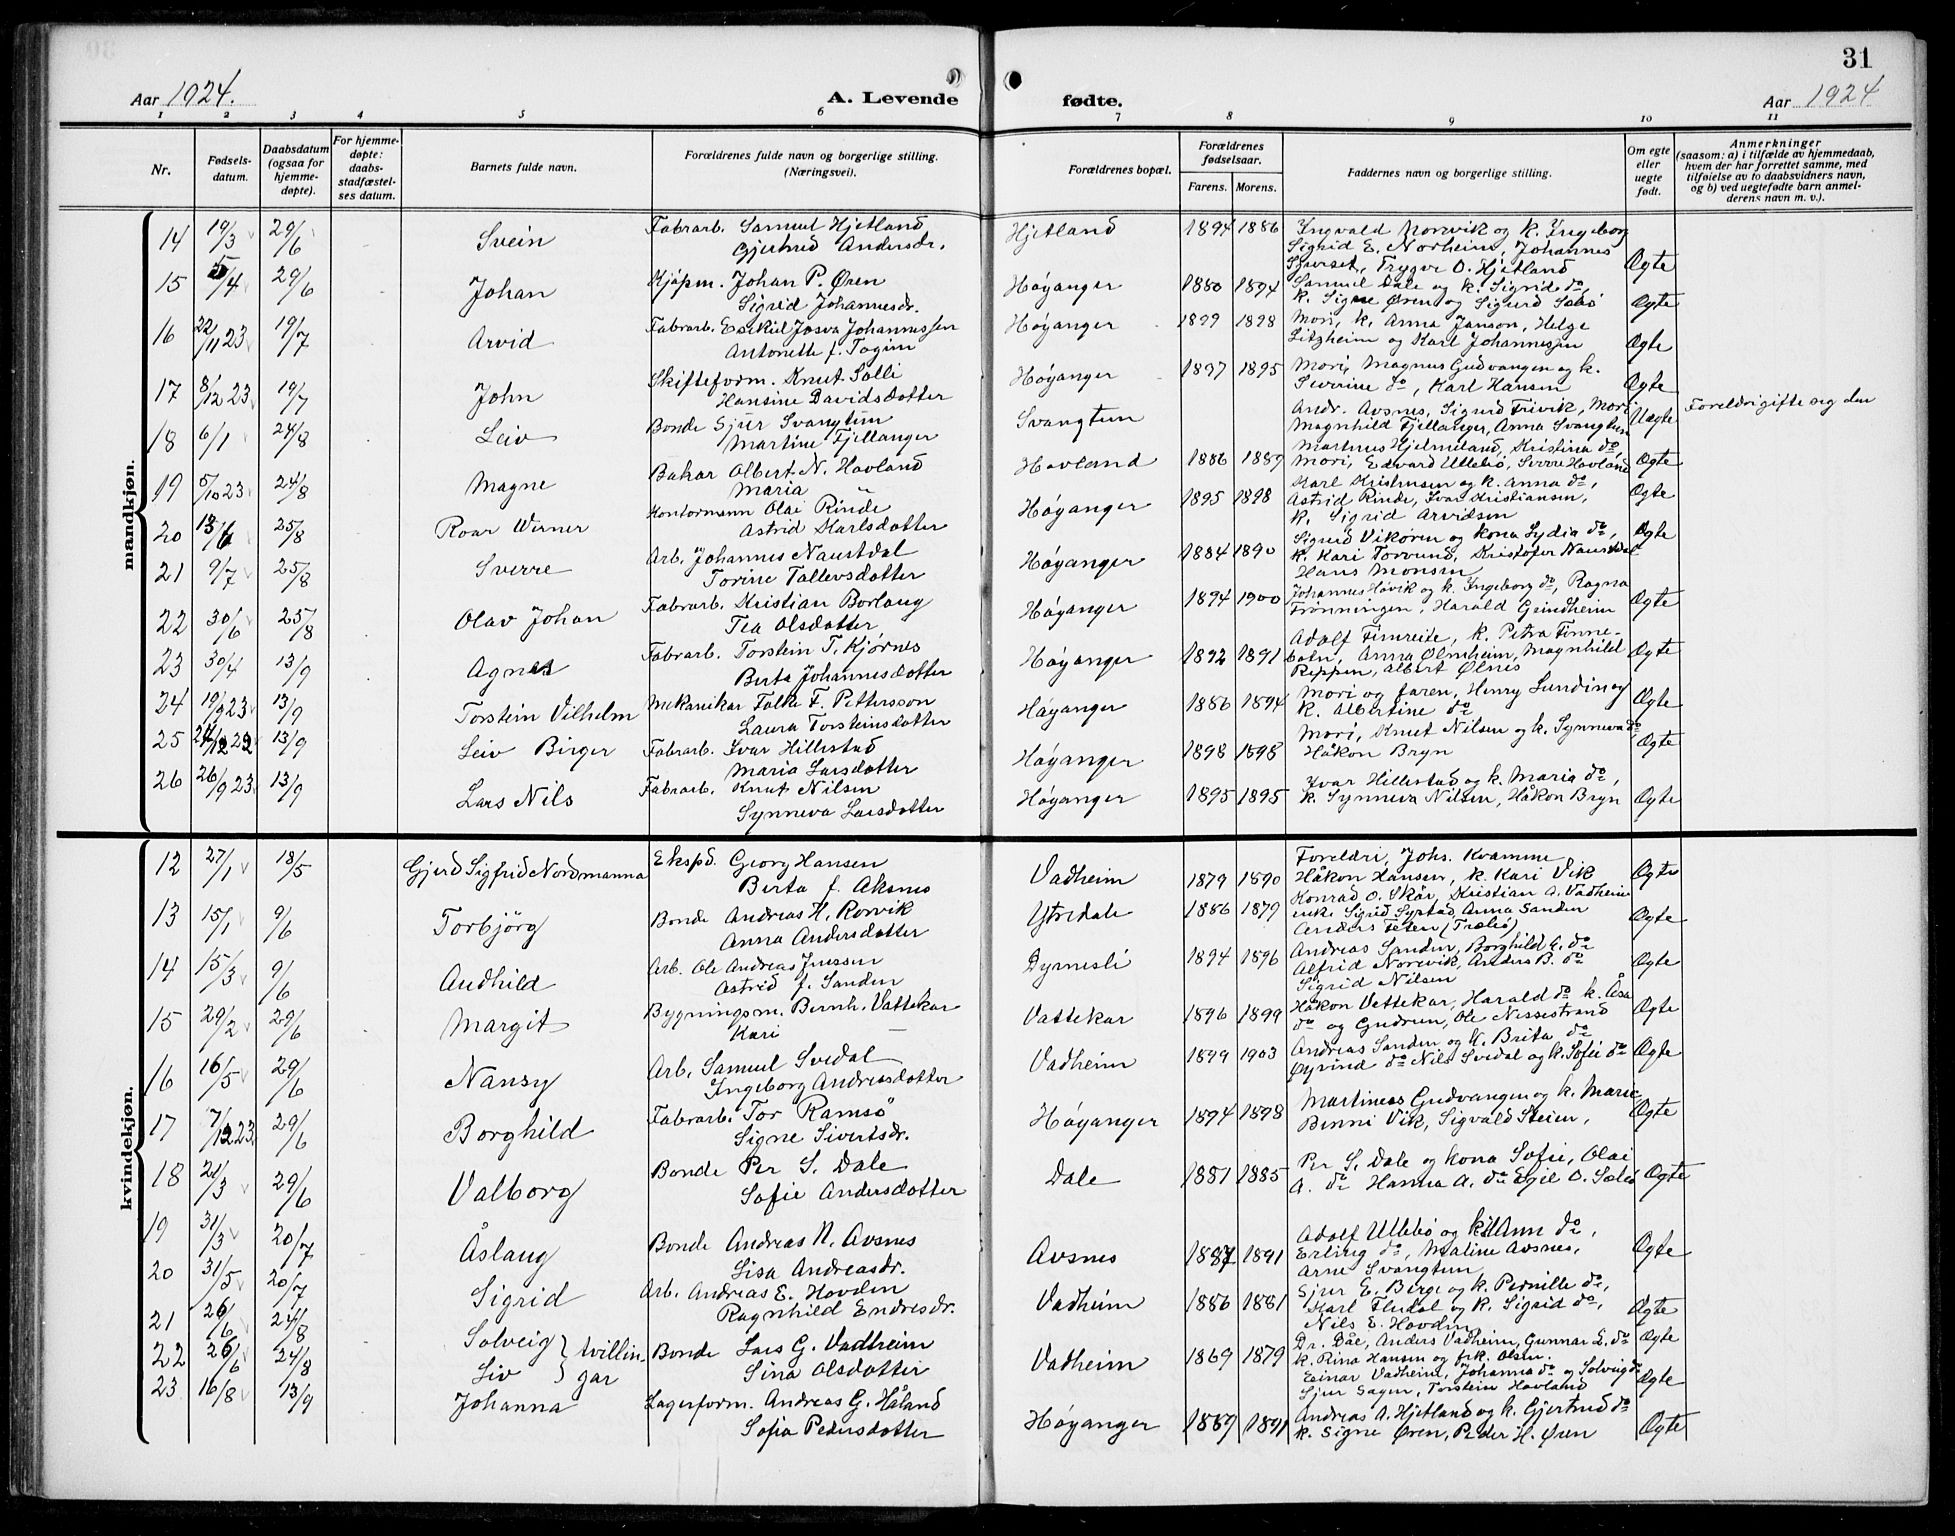 31
Aar 1924.
A. Levende
fødte.
Aar 1924
1 2 3 4 5 6 7 8 9 10 11
Nr.
Fødsels-
datum.
Daabsdatum
(ogsaa for
hjemme-
døpte).
For hjemme-
døpte:
daabs-
stadfæstel-
ses datum.
Barnets fulde navn.
Forældrenes fulde navn og borgerlige stilling.
(Næringsvei).
Forældrenes bopæl.
Forældrenes
fødselsaar.
Farens. Morens.
Faddernes navn og borgerlige stilling.
Om egte
eller
uegte
født.
Anmerkninger
(saasom: a) i tilfælde av hjemmedaab,
hvem der har forrettet samme, med
tilføielse av to daabsvidners navn,
og b) ved uegtefødte barn anmel-
derens navn m. v.).
mandkjøn.
14 19/3 29/6 Svein Fabrarb. Samuel Hjetland Hjetland 1894 1886 Ingvald Norevik og k. Ingeborg
Gjertrud Andersdr. Sigrid E. Norheim, Johannes
Trygve O. Hjetland Ægte
15 5/4 29/6 Johan Kjøpm. Johan P. Øren Høyanger 1880 1894 Samuel Dale og k. Sigride do,
Sigrid Johannesdr. k. Signe Øren og Sigurd Sæbø Ægte
16 22/11 23 19/7 Arvid Fabrarb. Esekiel Josva Johannessen Høyanger 1899 1898 Mori, k. Anna Janson, Helge
Antonette f. Litzheim og Karl Johannessen Ægte
17 8/12 23 19/7 John Skifteform. Knut Solli Høyanger 1897 1895 Mori, Magnus Gudvangen og k.
Hansine Davidsdotter Severine do, Karl Hansen Ægte
18 6/1 24/8 Leiv Bonde Sjur Svangtun Svangtun Andr. Avsnes, Sigurd Trivik, Mori Uægte Foreldri gifte seg
Martine Fjellanger Magnhild Fjellanger, Anna Svangtun
19 5/10 23 24/8 Magne Bakar Albert N. Hovland Hovland 1886 1889 Martinus Hjelmeland, Kristina do,
Maria " Mori, Edvard Ullebø, Sverre Hovland Ægte
20 13/6 25/8 Roar Werner Kontormann Olai Rinde Høyanger 1895 1898 Karl Kristensen og k. Anna do,
Astrid Karlsdotter Astrid Rinde, Ivar Kristiansen, Ægte
k. Sigrid Arvidsen
21 9/7 25/8 Sverre Arb. Johannes Naustdal Høyanger 1884 1890 Sigurd Vikøren og kona Lydia do, Ægte
Torine Tollevsdotter k. Kari Torvund, Kristofer Naustdal
Hans Monsen
22 30/6 25/8 Olav Johan Fabrarb. Kristian Borlaug Høyanger 1894 1900 Johannes Håvik og k. Ingeborg do, Ragna
Tea Olsdotter Frønningen, Harald Grindheim Ægte
23 30/4 13/9 Agnes Fabrarb. Torstein T. Kjørnes Høyanger 1892 1891 Adolf Fimreite, k. Petra Finne-
Berta Johannesdotter Anna Olmheim, Magnhild Ægte
Reppen, Albert Ølnes
24 19/9 23 13/9 Torstein Vilhelm Mekanikar Folke F. Pettersson Høyanger 1886 1894 Mori og faren, Henry Lundin og
Laura Torsteinsdotter k. Albertine do Ægte
25 24/12 22 13/9 Leiv Birger Fabrarb. Ivar Hillestad Høyanger 1898 1898 Mori, Knut Nilsen og k. Synneva do
Maria Larsdotter Håkon Bryn Ægte
26 26/9 23 13/9 Lars Nils Fabrarb. Knut Nilsen Høyanger 1895 1895 Ivar Hillestad og k. Maria do,
Synneva Larsdotter k. Synneva Nilsen, Håkon Bryn Ægte
kvindekjøn.
12 27/1 18/5 Gjerd Sigfrid Nordmanna Ekspd. Georg Hansen Vadheim 1879 1890 Foreldri, Johs. Kvamme
Berta f. Aksnes Håkon Hansen, k. Kari Vik Ægte
13 15/1 9/6 Torbjörg Bonde Andreas H. Rorvik Ytredale 1886 1879 Konrad O. Skår, Kristian A. Vadheim
Anna Andersdotter enke Sigrid Systad, Anna Sanden Ægte
Anders Teten (Træleø)
14 15/3 9/6 Audhild Arb. Ole Andreas Jnessen Dyrnesli 1894 1896 Andreas Sanden, Borghild A. do
Astrid f. Sanden Alfrid Norevik, Anders B. do Ægte
Sigrid Nilsen
15 29/2 29/6 Margit Bygningsm. Bernh. Vattekar Vattekar 1896 1899 Håkon Vattekar, Harald do k. Åsa
Kari — do og Gudrun, Ole Nessestrand Ægte
16 16/5 29/6 Nansy Arb. Samuel Svedal Vadheim 1899 1903 Andreas Sanden og k. Brita do
Ingeborg Andreasdotter Øyvind do Nils Svedal og k. Sofie do Ægte
17 7/12 23 29/6 Borghild Fabrarb. Tor Ramsö Høyanger 1894 1898 Martineas Gudvangen og k. Marie,
Signe Sivertsdr. Benni Vik, Sigvald Steien, Ægte
18 21/3 29/6 Valborg Bonde Per S. Dale Dale 1881 1885 Per S. Dale og kona Sofie, Olai
Sofie Andersdotter A. do Hanna A. do Egil O. Sæbø Ægte
19 31/3 20/7 Åslaug Bonde Andreas N. Avsnes Avsnes 1887 1891 Adolf Ullebø og k. Ann do,
Lisa Andreasdr. Erling do, Maline Avsnes, Ægte
Arne Svangtun
20 31/5 20/7 Sigrid Arb. Andreas E. Hovden Vadheim 1886 1881 Sjur E. Berge og k. Pernille do,
Ragnhild Endresdr. Karl Flidal og k. Sigrid do, Ægte
Nils E. Hovden
21 26/6 24/8 Solveig } tvillin- Bonde Lars G. Vadheim Vadheim 1869 1879 Dr. Dåe, Anders Vadheim, Gunnar L. do Ægte
22 26/6 24/8 Liv } gar Sina Olsdotter k. Rina Hansen og frk. Olsen.
Einar Vadheim, Johanna do og Solveig do Ægte
Sjur Sagen, Torstein Hovland
23 16/8 13/9 Johanna Lagerform. Andreas G. Håland Høyanger 1889 1891 Andreas A. Hjetland og k. Gjertrud do
Sofia Pedersdotter k. Signe Øren, Peder H. Øren Ægte